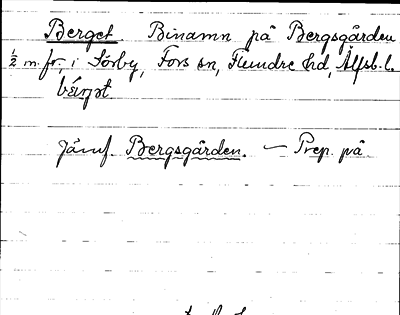 Berget Binamn på Bergsgården
½ m. fr., i Sörby, Fors sn, Flundre hd, Älfsb. l.
Jämf. Bergsgården. — Prep. på